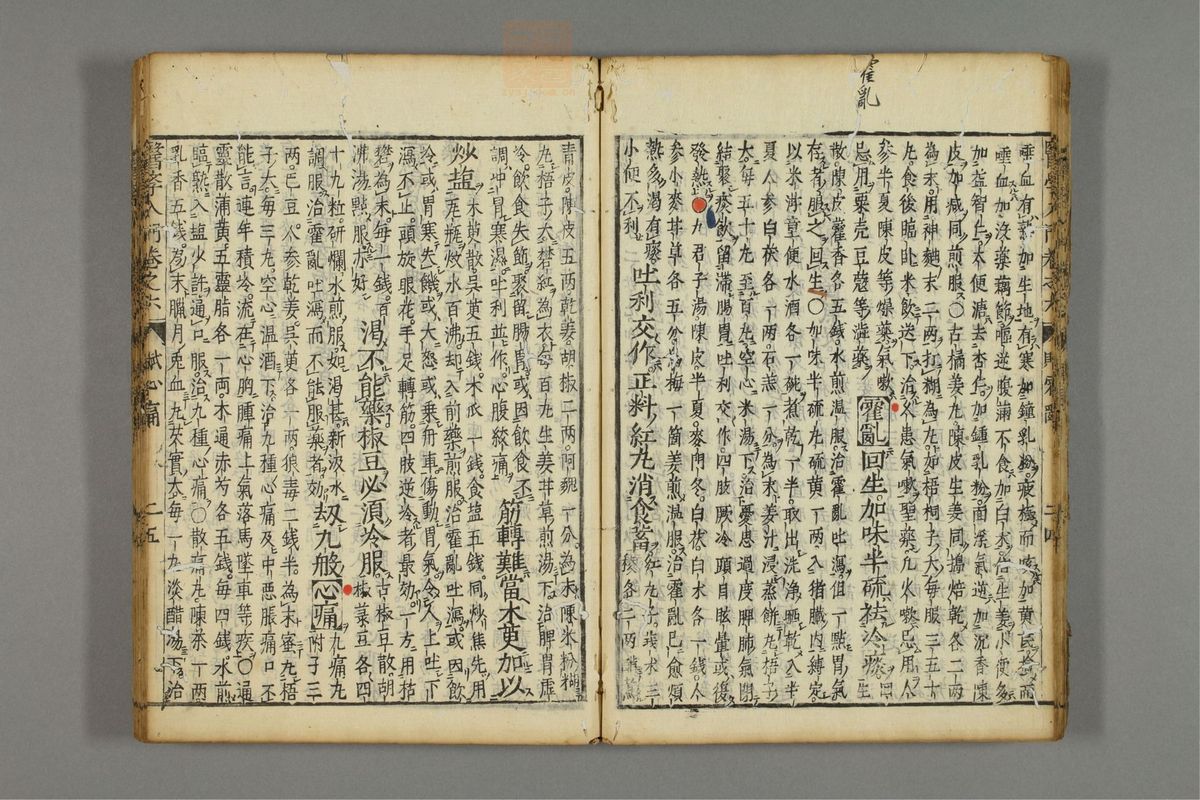 霍亂
唾血有熱加生地有寒加鐘乳粉疲極而咳加黃民勞而
唾血加沒藥藕節嘔逆腹滿不食加白术倍生姜小便多
加益智仁大便溏去杏仁加鍾乳粉面浮氣逆加沉香陳
皮加減同煎服○古橘姜丸陳皮生姜同搗焙乾各二兩
為末用神麴末二兩打糊為丸如梧桐子大每服三五十
丸食後臨臥米飲送下治久患氣嗽聖藥久嗽忌用人
參半夏陳皮等燥藥氣嗽
忌用粟壳豆蔻等澁藥
霍亂回生加味半硫祛冷痰
回生
散陳皮藿香各五錢水煎温服治霍亂吐瀉但一點胃氣
存者服之回生○加味半硫丸硫黃一兩入猪臟內縛定
以米泔童便水酒各一碗煮乾一半取出洗淨晒乾入半
夏人參白茯各一兩石羔一分為末姜汁浸蒸餅丸梧子
大每五十丸至百丸空心米湯下治憂思過度脾肺氣閉
結聚痰飲留滯腸胃吐利交作四肢厥冷頭目眩暈或復
發熱○九君子湯陳皮半夏麥門冬白茯白术各一錢人
參小麥甘草各五分烏梅一箇姜煎温服治霍亂已愈煩
熱多渴有痰
小便不利
吐利交作正料紅丸消食畜
紅丸子莪术三
棱各二兩
青皮陳皮五兩乾姜胡椒二兩阿魏一分為末陳米粉糊
丸梧子大礬紅為衣每百丸生姜甘草煎湯下治脾胃虛
冷飲食失節聚留腸胃或因飲食不
調冲冒寒濕吐利並作心腹絞痛
筋轉難當木萸加以
炒塩
木萸散吳萸五錢木瓜一錢食塩五錢同炒焦先用
瓦瓶煅水百沸却入前藥煎服治霍亂吐瀉或因飲
冷或胃寒失饑或大怒或乗舟車傷動胃氣令人上吐下
瀉不止頭旋眼花手足轉筋四肢逆冷者最効一方用枯
礬為末每一錢
沸湯點服亦好
渴不能藥椒豆必須冷服
古椒豆散胡
椒菉豆各四
十九粒研爛水煎服如渴甚新汲水
調服治霍亂吐瀉而不能服藥者効
刼九般心痛
九痛丸
附子三
兩巴豆人參乾姜吳萸各一兩狼毒二錢半為末蜜丸梧
子大每三丸空心温酒下治九種心痛及中惡脹痛口不
能言連年積冷流在心胸腫痛上氣落馬墜車等疾○通
靈散蒲黃五靈脂各一兩木通赤芍各五錢每四錢水煎
臨熟入塩少許通口服治九種心痛○散痛丸陳茶一兩
乳香五錢為末臘月兎血丸芡實大每一丸淡醋湯下治